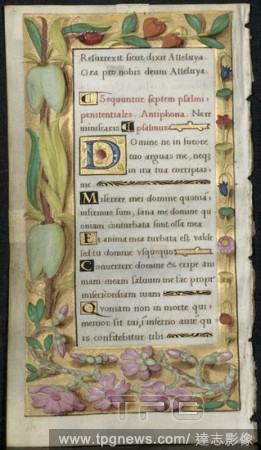 Resurrexit sicut dixit Alleluya.
Ora pro nobis deum Alleluya.
Sequuntur septem psalmi
penitentiales. Antiphona. Ne re
miniscaris psalmus
Domine ne in furore
tuo arguas me, neqz
in ira tua corripias
me.
Miserere mei domine quonia
infirmus sum, sana me domine qu
oniam conturbata sunt ossa mea
Et anima mea turbata est valde
sed tu domine Usquequo
Convertere domine & eripe ani
mam meam salvum me fac propt
misericordiam tuam
Quoniam non in morte qui
memor sit tui, inferno aute qu
is confitebitur tibi
TPG
www.tpgnews.com/ 達志影像